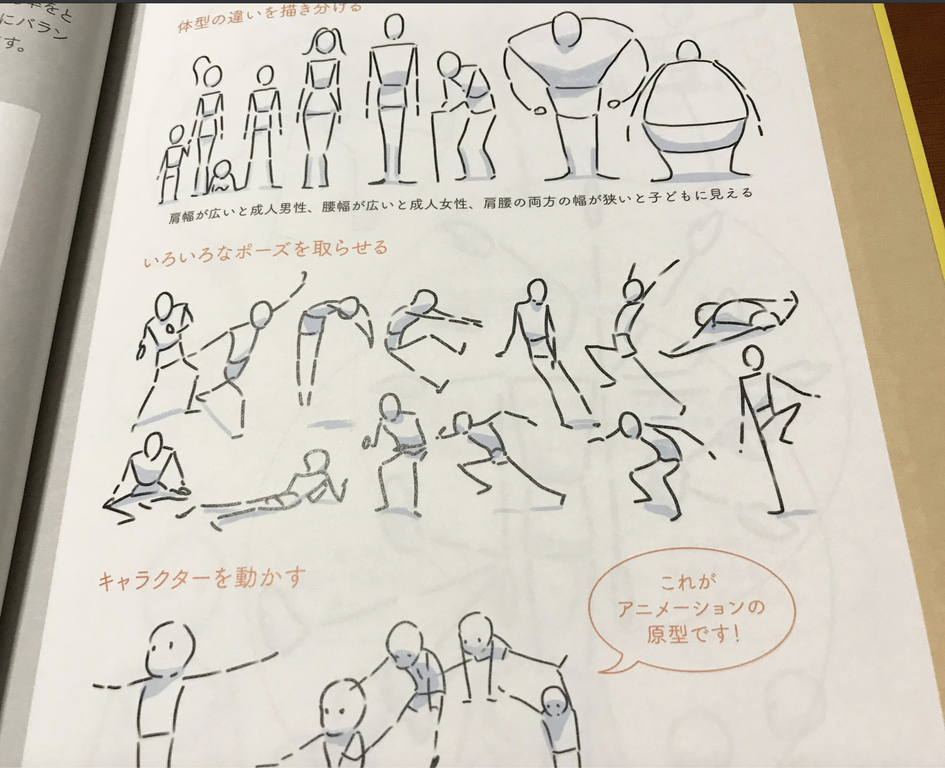 にバラン
す。
体型の違いを描き分ける
肩幅が広いと成人男性、腰幅が広いと成人女性、肩腰の両方の幅が狭いと子どもに見える
いろいろなポーズを取らせる
キャラクターを動かす
これが
アニメーションの
原型です!